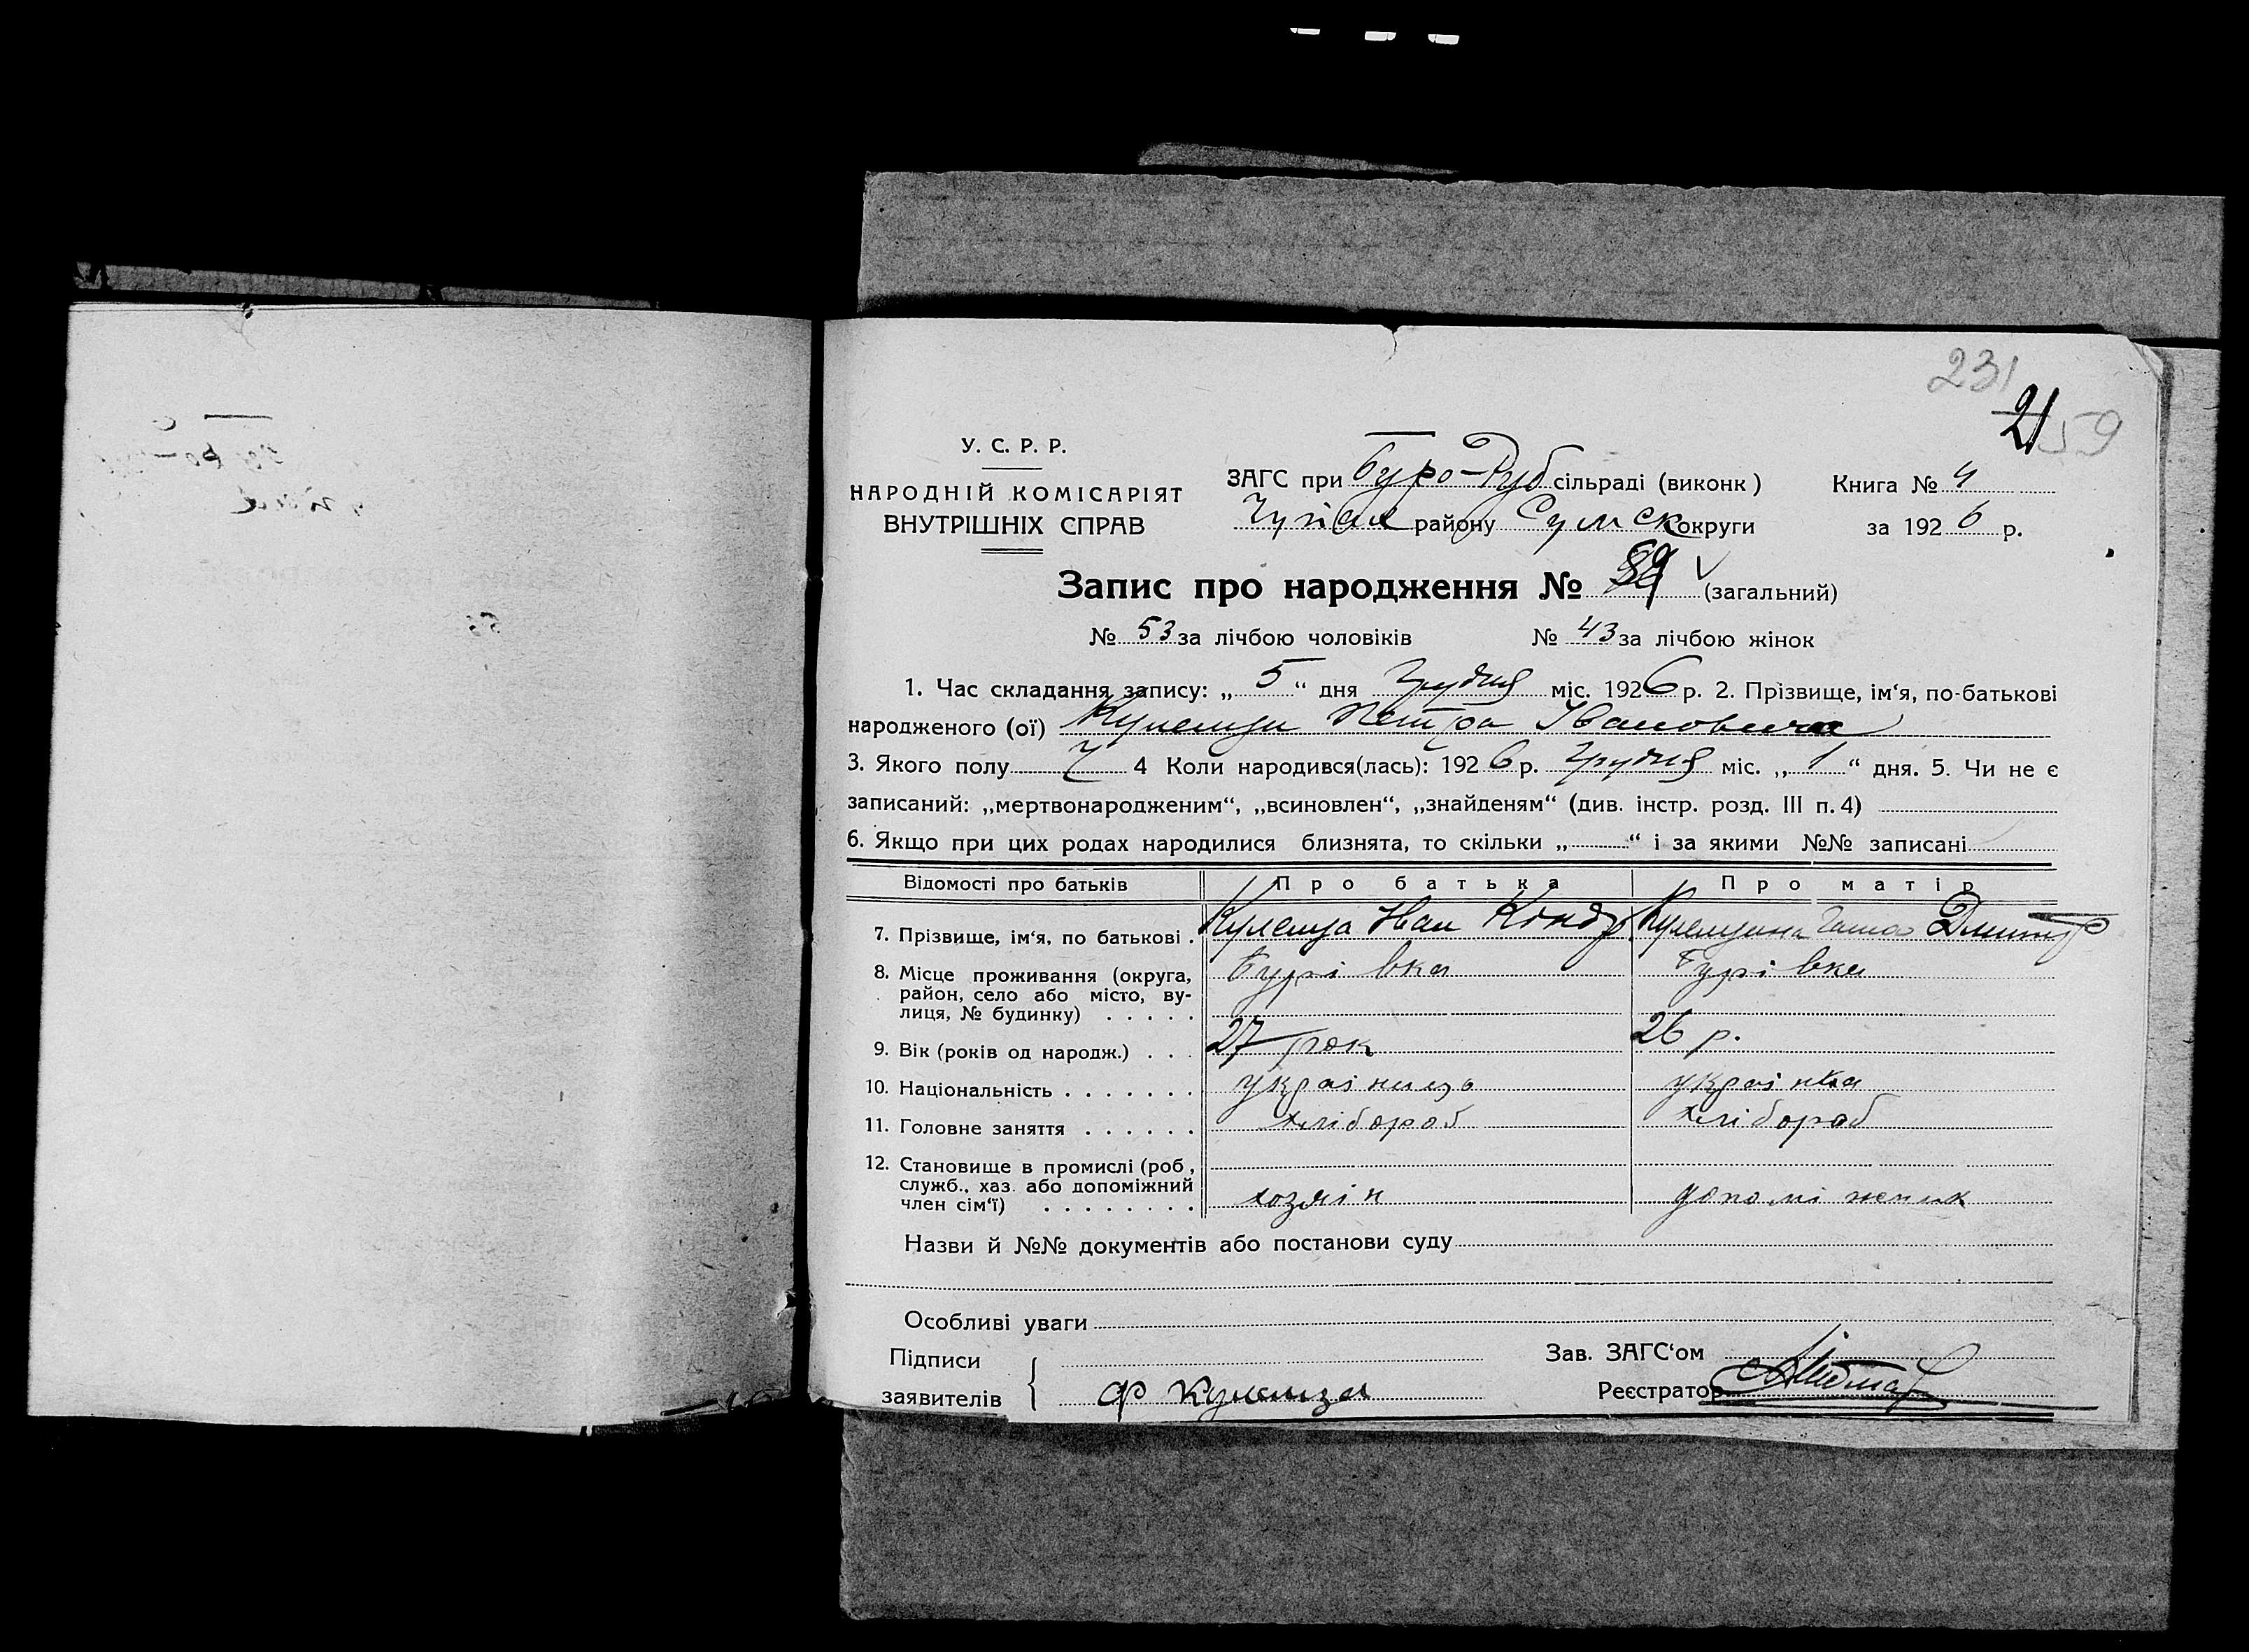 231
21 59
У. С. Р. Р.
НАРОДНІЙ КОМІСАРІЯТ
ВНУТРІШНІХ СПРАВ
ЗАГС при Буро-Руб сільраді (виконк)
району Сумск округи
Книга № 4
за 1926 р.
Запис про народження № (загальний)
№ 53 за лічбою чоловіків № 43 за лічбою жінок
1. Час складання запису: „ 5 “ дня Грудня міс. 1926 р. 2. Прізвище, ім‘я, по-батькові
народженого (ої) Кулешы Петра Івановича
3. Якого полу Ч 4 Коли народився(лась): 1926 р. Грудня міс. „ 1 “ дня. 5. Чи не є
записаний: „мертвонародженим“, „всиновлен“, „знайденям“ (див. інстр. розд. III п. 4)
6. Якщо при цих родах народилися близнята, то скільки „ “ і за якими №№ записані
Відомості про батьків Про батька Про матір
7. Прізвище, ім‘я, по батькові . Иван Кіндр. Дмитр
8. Місце проживання (округа, Бурівка Бурівка
район, село або місто, ву-
лиця, № будинку) . . . . .
9. Вік (років од народж.) . . . 27 рок 26 р.
10. Національність . . . . . . . украінець украінка
11. Головне заняття . . . . . . хлібороб хлібороб
12. Становище в промислі (роб,
служб., хаз. або допоміжний хозяін допоміжник
член сім‘ї) . . . . . . . .
Назви й №№ документів або постанови суду
Особливі уваги
Підписи
заявителів Ф
Зав. ЗАГС‘ом
Реєстратор